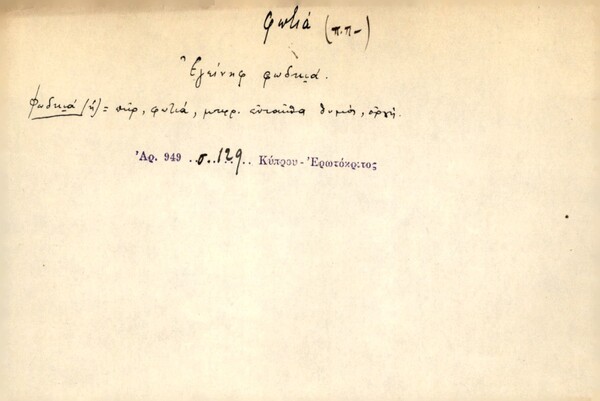 φωτιά (π.π-)
Ἐγείνηφ φωδκιά.
φωδκιά (ἡ) = πῦρ, φωτιά, μεφρ. ἐνταῦθα θυμός, ὀργή.
Ἀρ. 949 ..σ..129.. Κύπρου - Ἐρωτόκριτος